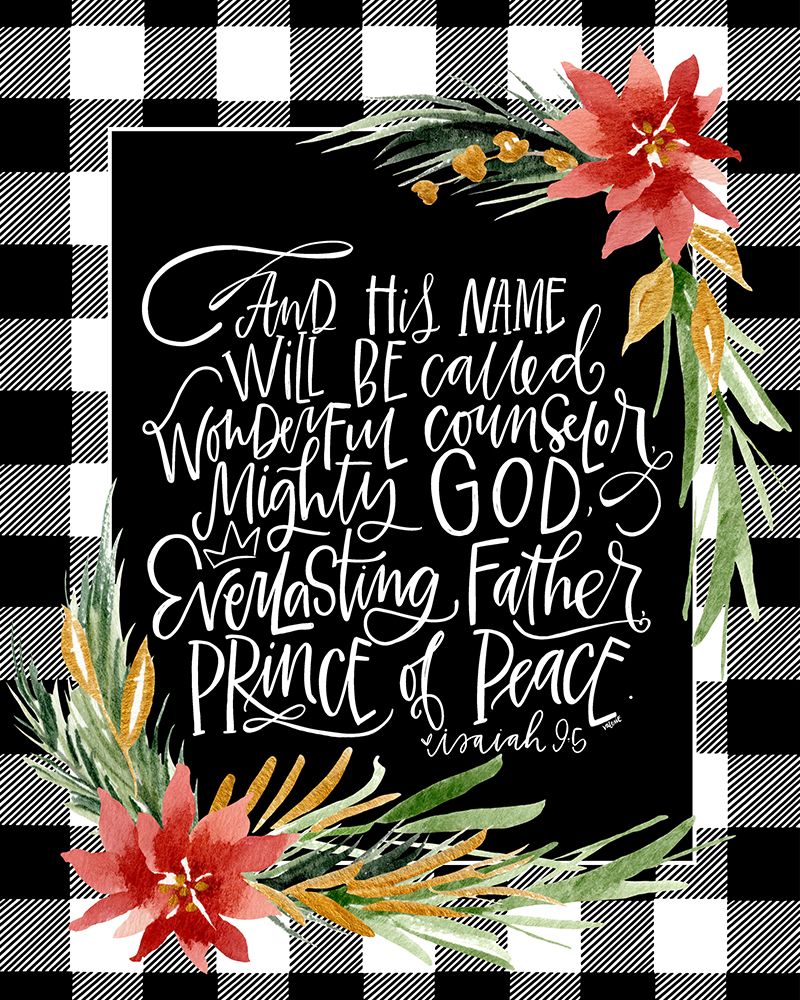 And His NAME
WILL BE called
WONDERFUL COUNSELOR,
Mighty GOD,
EVERLASTING Father,
PRINCE of Peace.
isaiah 9:5
VALERIE